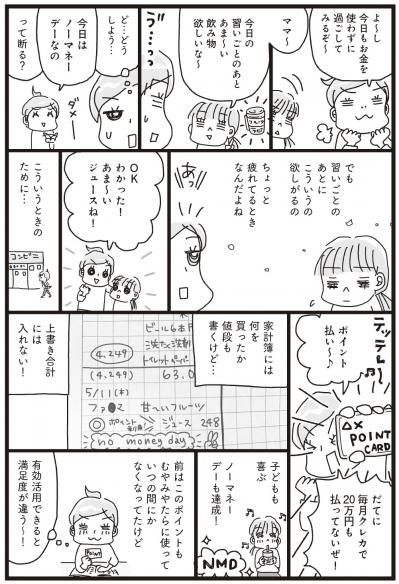 よーし
今日もお金を
使わずに
過ごして
みるぞ〜
ママ〜
今日の
習いごとのあと
あま〜い
飲み物
欲しいな〜
う…っ
ど…どう
しよう…
今日は
ノーマネー
デーなの
って断る？
ダメ〜
でも
習いごとの
あとに
こういうの
欲しがるの
ちょっと
疲れてるとき
なんだよね
あっ
OK
わかった！
あま〜い
ジュースね！
こういうときの
ために…
コンビニ
テッテレ〜
ポイント
払い〜♪
△×
POINT
CARD
だてに
毎月クレカで
20万円も
払ってないぜ！
家計簿には
何を
買ったか
値段も
書くけど…
ビール6本
洗たく洗剤
4,249
トイレットペーパー
(4,249)
63.0
5/11(木)
ファ●マ
甘〜いフルーツ
◎ポイント利用♪
ジュース 248
no money day
上書き合計
には
入れない！
子どもも
喜ぶ
ノーマネー
デーも達成！
NMD
前はこのポイントも
むやみやたらに使って
いつの間にか
なくなってたけど
Point
有効活用できると
満足度が違う〜！